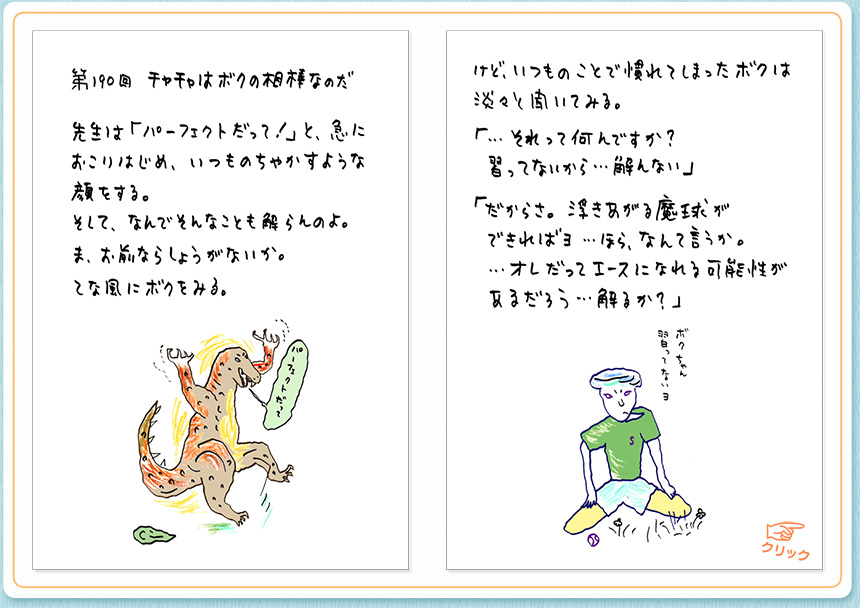 第190回 チャチャはボクの相棒なのだ
先生は「パーフェクトだって！」と、急に
おこりはじめ、いつものちゃかすような
顔をする。
そして、なんでそんなことも解らんのよ。
ま、お前ならしょうがないか。
てな風にボクをみる。
パーフェクトだって
けど、いつものことで慣れてしまったボクは
淡々と聞いてみる。
「…それって何んですか？
習ってないから…解んない」
「だからさ。浮きあがる魔球が
できればヨ…ほら、なんて言うか。
…オレだってエースになれる可能性が
あるだろう…解るか？」
ボクちゃん
習ってないヨ
S
クリック